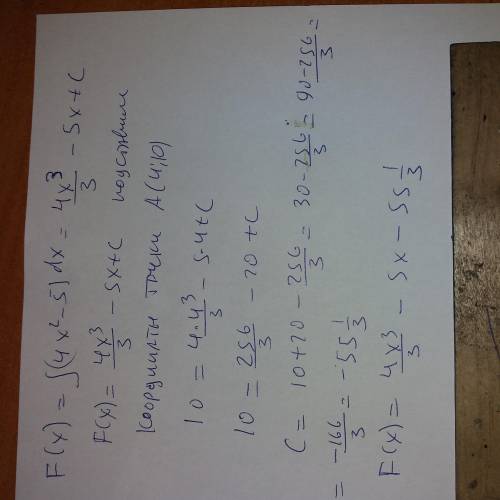 F(x) = ∫(4x²-5)dx = 4x³/3 - 5x+C
F(x) = 4x³/3 - 5x+C подставим
координаты точки A(4;10)
10 = 4·4³/3 - 5·4+C
10 = 256/3 - 20 +C
C = 10+20 - 256/3 = 30 - 256/3 = 90-256/3 =
= -166/3 = -55 1/3
F(x) = 4x³/3 - 5x - 55 1/3